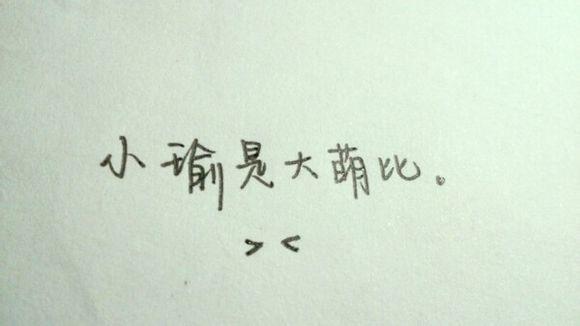 小瑜是大萌比。
> <